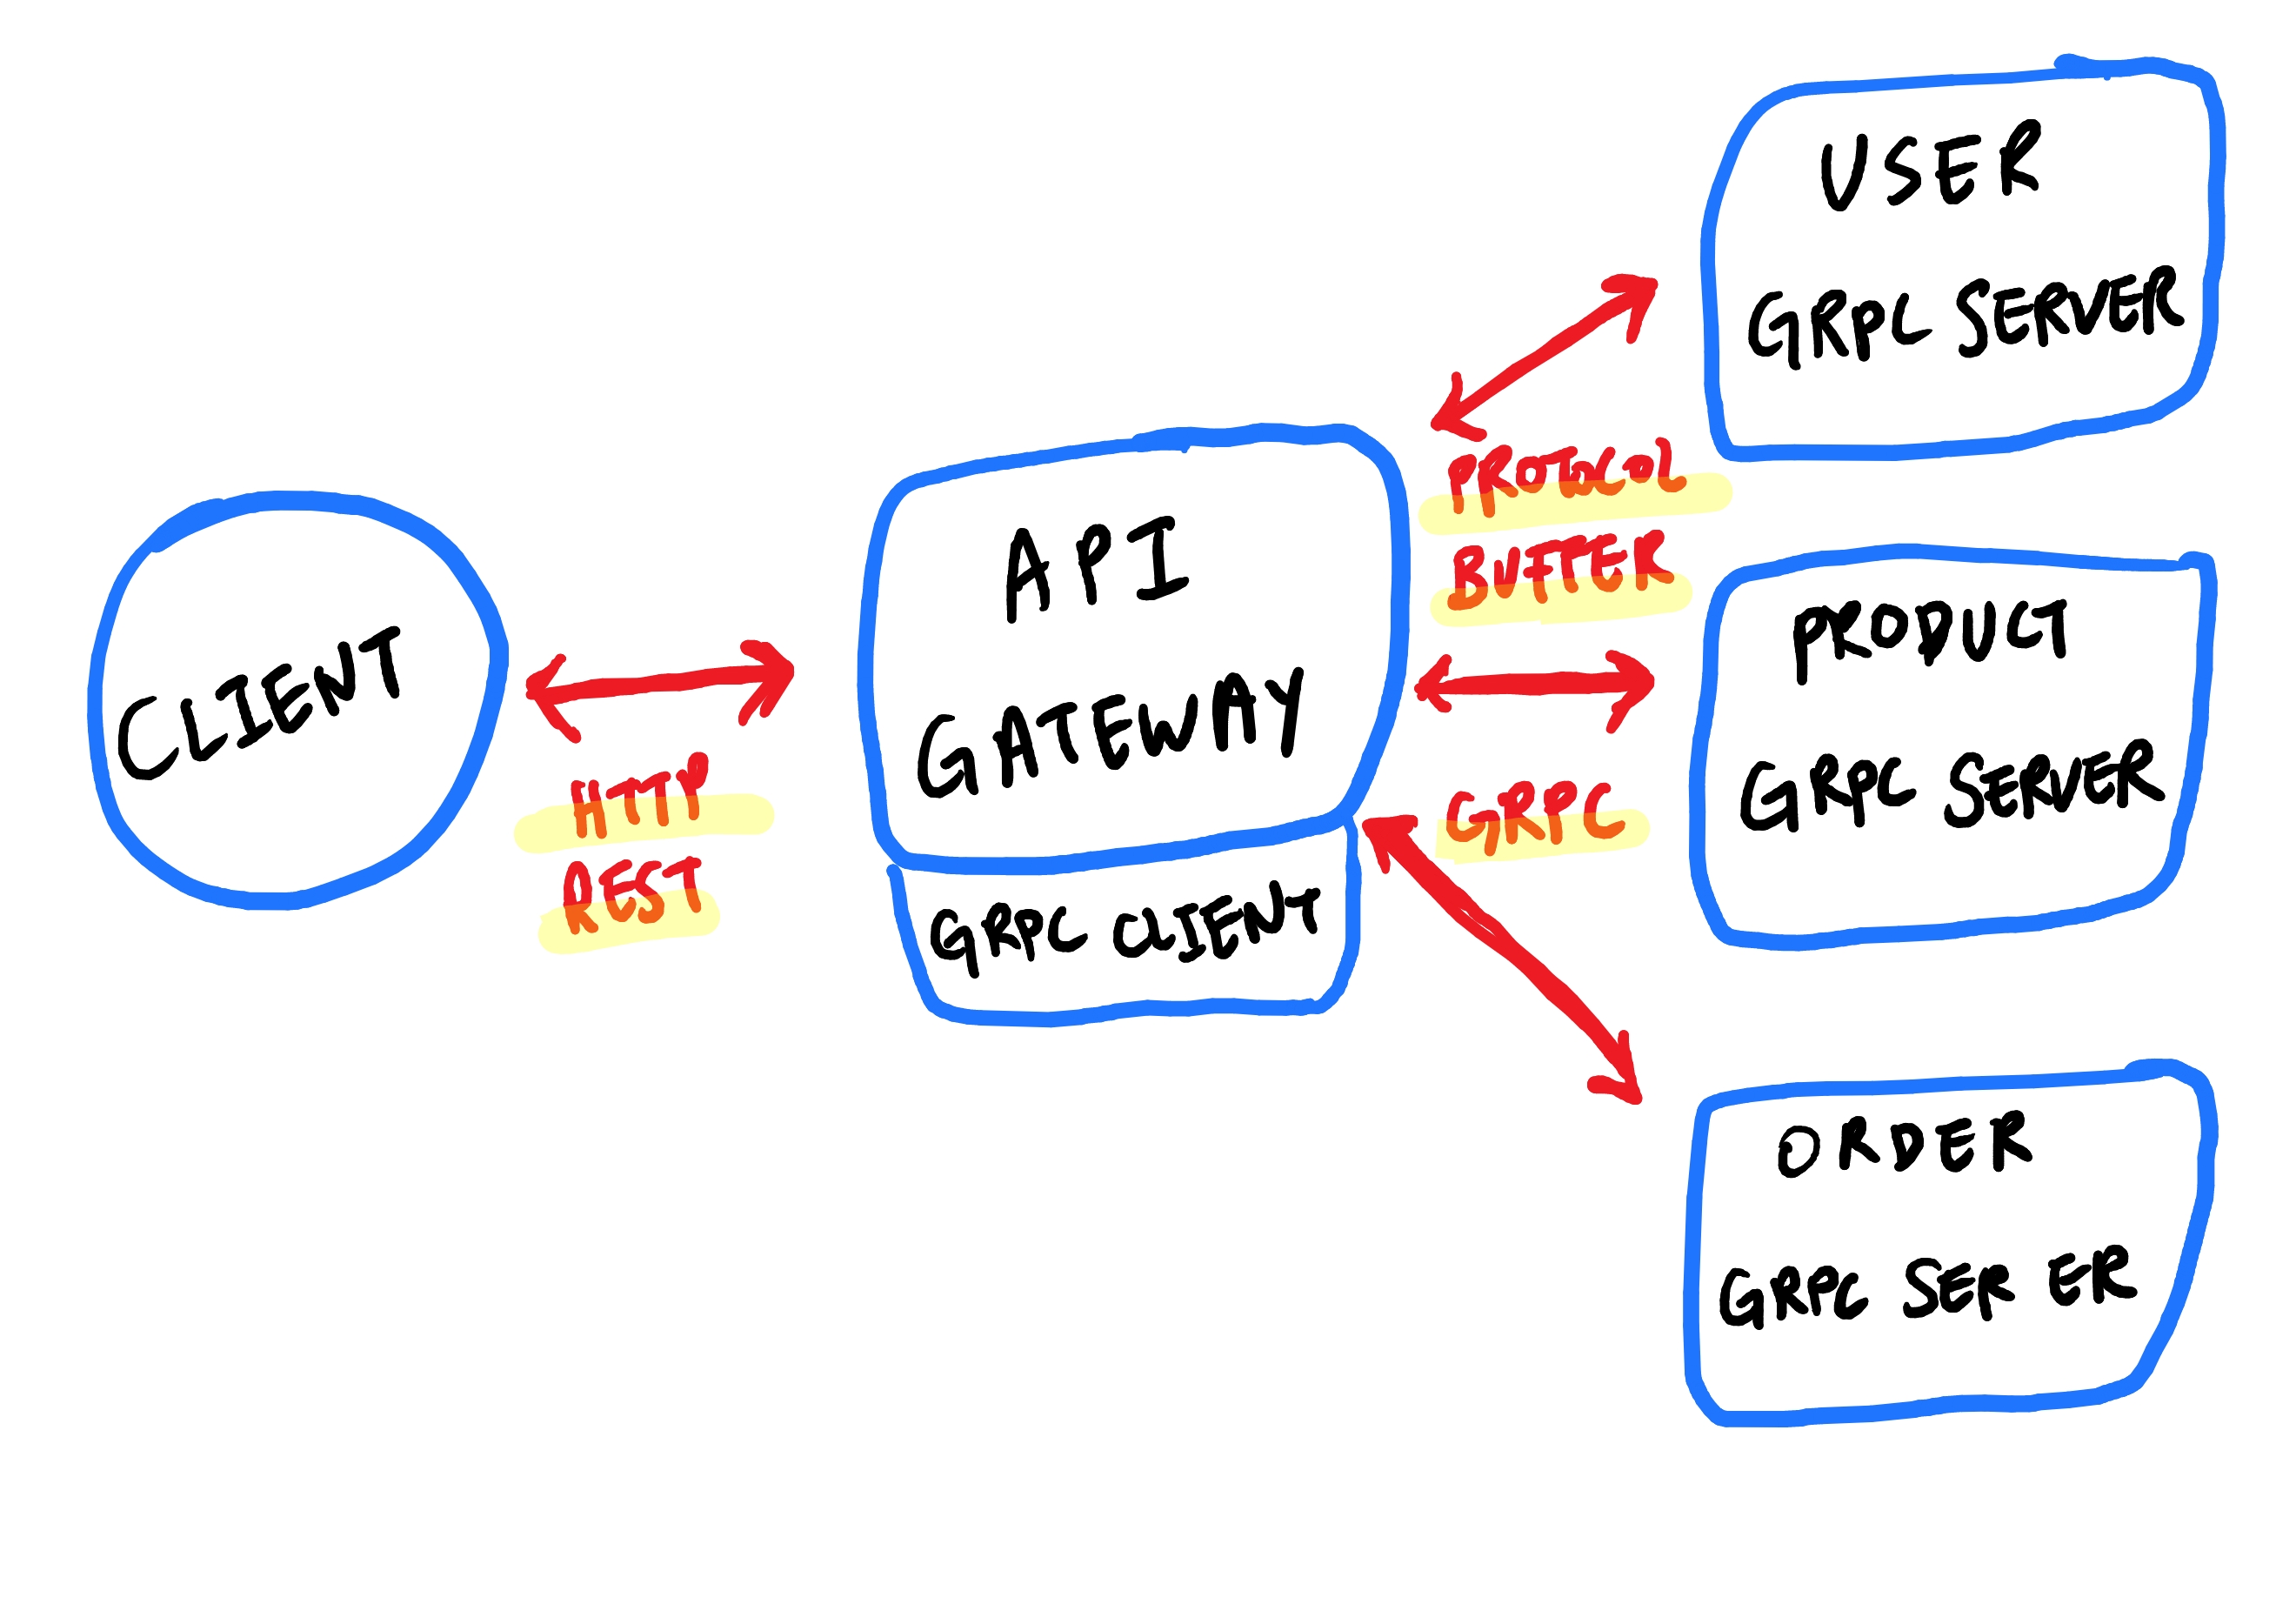 CLIENT
HTTP
REST
API
GATEWAY
GRPC CLIENT
PROTOCOL
BUFFER
GRPC
USER
GRPC SERVER
PRODUCT
GRPC SERVER
ORDER
GRPC SER ER